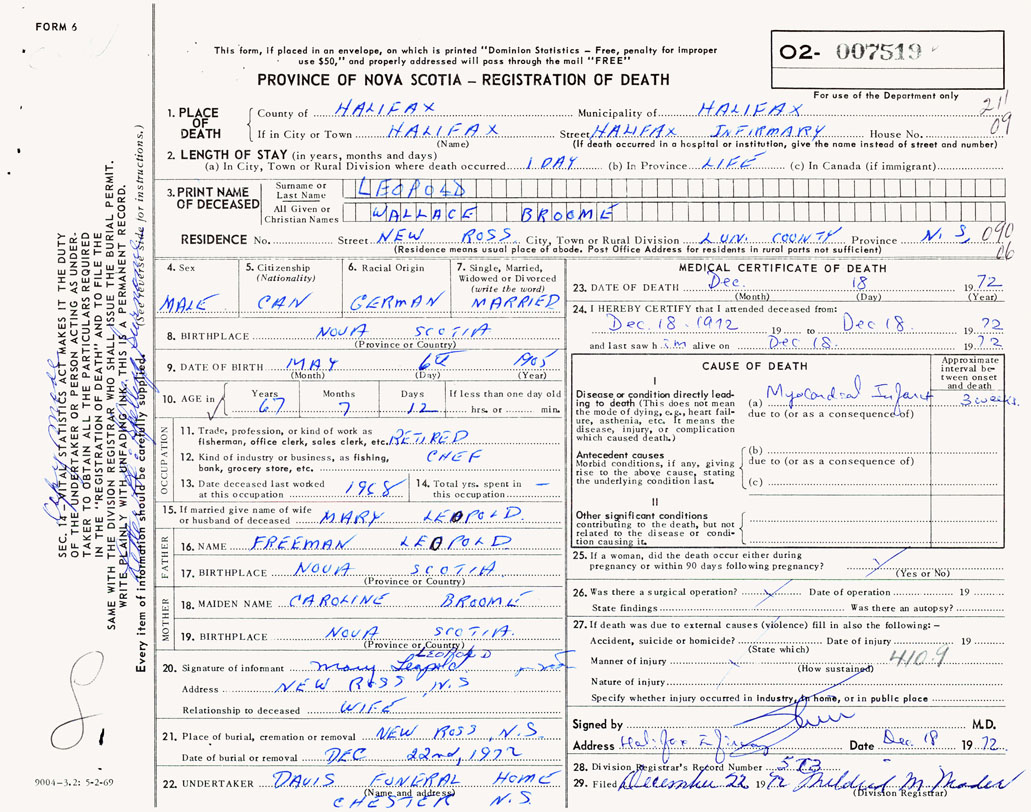 FORM 6
This form, if placed in an envelope, on which is printed "Dominion Statistics – Free, penalty for improper
use $50," and properly addressed will pass through the mail "FREE"
PROVINCE OF NOVA SCOTIA – REGISTRATION OF DEATH
02- 007519
For use of the Department only
211
09
1. PLACE OF DEATH
County of HALIFAX Municipality of HALIFAX
If in City or Town HALIFAX Street HALIFAX INFIRMARY House No.
(Name) (If death occurred in a hospital or institution, give the name instead of street and number)
2. LENGTH OF STAY (in years, months and days)
(a) In City, Town or Rural Division where death occurred 1 DAY (b) In Province LIFE (c) In Canada (if immigrant)
3. PRINT NAME OF DECEASED
Surname or Last Name LEOPOLD
All Given or Christian Names WALLACE BROOME
RESIDENCE No. Street NEW ROSS City, Town or Rural Division LUN. COUNTY Province N.S. 090
(Residence means usual place of abode. Post Office Address for residents in rural parts not sufficient) 06
4. Sex MALE
5. Citizenship (Nationality) CAN
6. Racial Origin GERMAN
7. Single, Married, Widowed or Divorced (write the word) MARRIED
8. BIRTHPLACE NOVA SCOTIA
(Province or Country)
9. DATE OF BIRTH MAY 6th 1905
(Month) (Day) (Year)
10. AGE in Years Months Days If less than one day old
67 7 12 hrs. or min.
OCCUPATION
11. Trade, profession, or kind of work as
fisherman, office clerk, sales clerk, etc. RETIRED
12. Kind of industry or business, as fishing,
bank, grocery store, etc. CHEF
13. Date deceased last worked
at this occupation 1968
14. Total yrs. spent in
this occupation –
15. If married give name of wife
or husband of deceased MARY LEOPOLD.
FATHER
16. NAME FREEMAN LEOPOLD
17. BIRTHPLACE NOVA SCOTIA
(Province or Country)
MOTHER
18. MAIDEN NAME CAROLINE BROOME
19. BIRTHPLACE NOVA SCOTIA.
(Province or Country)
LEOPOLD
20. Signature of informant Mary Leopold
Address NEW ROSS, N.S
Relationship to deceased WIFE
21. Place of burial, cremation or removal NEW ROSS, N.S.
Date of burial or removal DEC 22nd, 1972
22. UNDERTAKER DAVIS FUNERAL HOME
(Name and address)
CHESTER N.S.
MEDICAL CERTIFICATE OF DEATH
23. DATE OF DEATH Dec. 18 1972
(Month) (Day) (Year)
24. I HEREBY CERTIFY that I attended deceased from:
Dec. 18. 1972 19 to Dec 18. 1972
and last saw him alive on Dec 18. 1972
CAUSE OF DEATH
Approximate interval between onset and death
I
Disease or condition directly leading to death (This does not mean the mode of dying, e.g., heart failure, asthenia, etc. It means the disease, injury, or complication which caused death.)
(a) Myocardial Infarct 3 weeks.
due to (or as a consequence of)
Antecedent causes
Morbid conditions, if any, giving rise to the above cause, stating the underlying condition last.
(b)
due to (or as a consequence of)
(c)
II
Other significant conditions
contributing to the death, but not related to the disease or condition causing it.
25. If a woman, did the death occur either during
pregnancy or within 90 days following pregnancy?
(Yes or No)
26. Was there a surgical operation? Date of operation 19
State findings Was there an autopsy?
27. If death was due to external causes (violence) fill in also the following: –
Accident, suicide or homicide? Date of injury 19
(State which)
410.9
Manner of injury
(How sustained)
Nature of injury
Specify whether injury occurred in industry, in home, or in public place
Signed by M.D.
Address Halifax Infirmary Date Dec. 18 1972.
28. Division Registrar's Record Number 573
29. Filed December 22 1972 Mildred M. Meader
(Division Registrar)
SEC. 14 – VITAL STATISTICS ACT MAKES IT THE DUTY
OF THE UNDERTAKER OR PERSON ACTING AS UNDER-
TAKER TO OBTAIN ALL THE PARTICULARS REQUIRED
IN THE "REGISTRATION OF DEATH" AND TO FILE THE
SAME WITH THE DIVISION REGISTRAR WHO SHALL ISSUE THE BURIAL PERMIT.
WRITE PLAINLY WITH UNFADING INK. THIS IS A PERMANENT RECORD.
Every item of information should be carefully supplied. (See reverse side for instructions.)
9004-3.2: 5-2-69